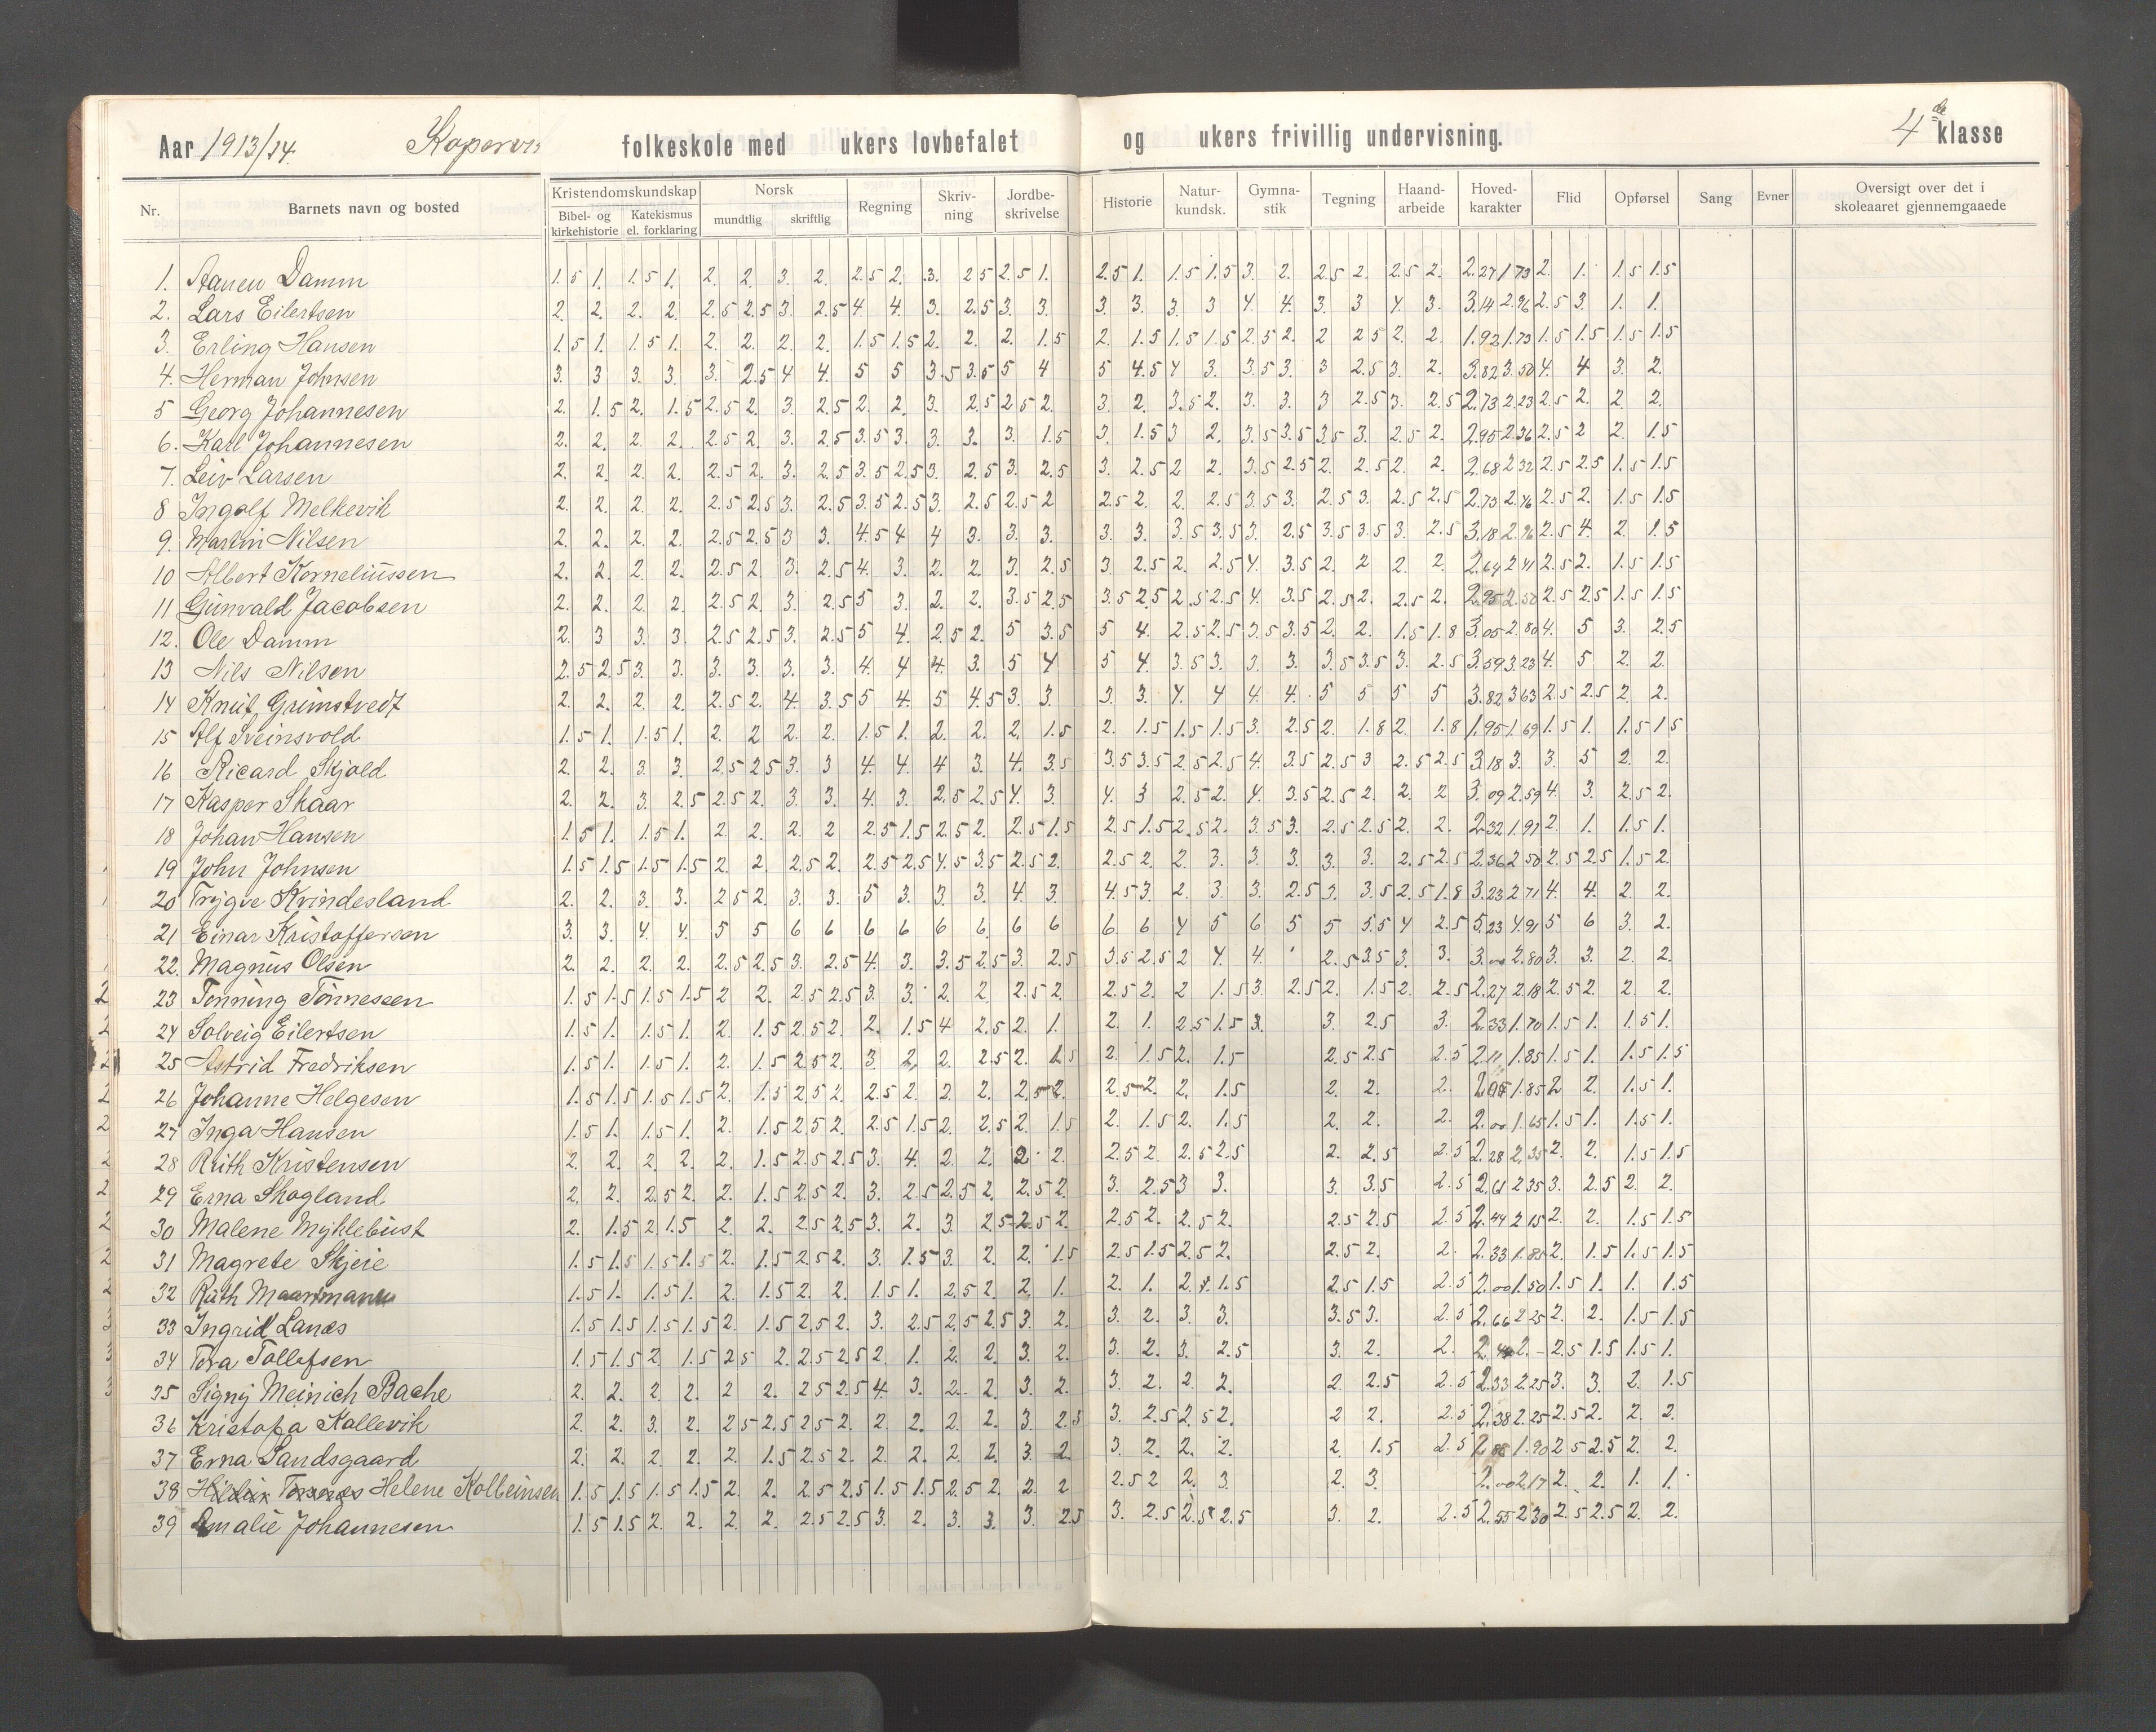 Aar 1913/14. Kopervik folkeskole med ukers lovbefalet og ukers frivillig undervisning. 4de klasse
Nr. Barnets navn og bosted Kristendomskundskap Norsk Regning Skriv-ning Jordbe-skrivelse Historie Natur-kundsk. Gymna-stik Tegning Haand-arbeide Hoved-karakter Flid Opførsel Sang Evner Oversigt over det i skoleaaret gjennemgaaede
Bibel- og kirkehistorie Katekismus el. forklaring mundtlig skriftlig
1. Damm 1.5 1. 1.5 1. 2. 2. 3. 2. 2.5 2. 3. 2.5 2.5 1. 2.5 1. 1.5 1.5 3. 2. 2.5 2. 2.5 2. 2.27 1.73 2. 1. 1.5 1.5
2. Lars Eilertsen 2. 2. 2. 2. 2.5 2.5 3. 2.5 4. 4. 3. 2.5 3. 3. 3. 3. 3. 3 4. 4. 3. 3 4. 3. 3.14 2.96 2.5 3. 1. 1.
3. Erling Hansen 1.5 1. 1.5 1. 2. 2. 2. 2. 1.5 1.5 2. 2. 2. 1.5 2. 1.5 1.5 1.5 2.5 2. 2 2.5 2. 2. 1.92 1.73 1.5 1.5 1.5 1.5
4. Herman Johnsen 3. 3 3. 3. 3. 2.5 4 4. 5 5 3.5 3.5 5 4 5 4.5 4 3. 3.5 3. 3 2.5 3. 2. 3.82 3.50 4. 4 3. 2.
5 Georg Johannesen 2. 1.5 2. 1.5 2.5 2. 3. 2.5 2. 2. 3. 2.5 2.5 2. 3. 2. 3.5 2. 3. 3. 3 2.5 3. 2.5 2.73 2.23 2.5 2. 2. 2.
6. Karl Johannesen 2. 2. 2. 2. 2.5 2. 3. 2.5 3.5 3. 3. 3. 3. 1.5 3. 1.5 3 2. 3.5 3.5 3.5 3. 2.5 2. 2.95 2.36 2.5 2 2. 1.5
7. Leiv Larsen 2. 2. 2. 2. 2.5 2. 3. 2.5 3.5 2.5 3. 2.5 3. 2.5 3. 2.5 2 2. 3.5 2.5 2. 2.5 2. 2. 2.68 2.32 2.5 2.5 1.5 1.5
8 Ingolf Melkevik 2. 2. 2. 2. 2.5 2.5 3. 2.5 3.5 2.5 3. 2.5 2.5 2 2.5 2. 2. 2.5 3.5 3. 2.5 3. 2.5 2.5 2.73 2.46 2.5 2. 1.5 1.5
9. Martin Nilsen 2. 2. 2. 2. 2.5 2.5 3 3. 4.5 4 4 3. 3. 3. 3. 3. 3.5 3.5 3. 2.5 3.5 3.5 3. 2.5 3.18 2.96 2.5 4. 2. 1.5
10 Albert Korneliussen 2. 2. 2. 2. 2.5 2 3. 2.5 4. 3. 2. 2. 3. 2.5 3 2.5 2. 2.5 4. 3.5 2. 2 2. 2. 2.64 2.41 2.5 2. 1.5 1.5
11 Gunvald Jacobsen 2. 2. 2. 2. 2.5 2 3. 2.5 5 3. 2. 2. 3.5 2.5 3.5 2.5 2.5 2.5 4. 3.5 2.5 2. 2.5 2. 2.95 2.50 2.5 2.5 1.5 1.5
12. Ole Damm 2. 3 3. 3. 2.5 2.5 3. 2.5 5 4. 2.5 2. 5 3.5 5 4. 2.5 2.5 3.5 3.5 2. 2. 1.5 1.8 3.05 2.80 4. 5 3. 2.5
13 Nils Nilsen 2.5 2.5 3. 3. 3. 3. 3. 3. 4. 4 4. 3. 5 4 5 4. 3.5 3. 3. 3. 3.5 3.5 3. 2.5 3.59 3.23 4. 5 2. 2.
14 Knut Grimstvedt 2. 2. 2. 2. 2.5 2. 4. 3.5 5 4. 5 4.5 3. 3. 3. 3. 4. 4 4. 4. 5 5 5 5 3.82 3.63 2.5 2.5 2. 2.
15 Alf Sveinsvold 1.5 1. 1.5 1. 2. 2 2. 2. 1.5 1. 2. 2. 2. 1.5 2. 1.5 1.5 1.5 3. 2.5 2. 1.8 2. 1.8 1.95 1.69 1.5 1. 1.5 1.5
16 Ricard Skjold 2. 2. 3. 3. 2.5 2.5 3. 3 4. 4. 4 3. 4. 3.5 3.5 3.5 2.5 2.5 4. 3.5 2.5 3 2.5 2.5 3.18 3. 3. 5 2. 2.
17 Kasper Skaar 2. 2. 3. 2.5 2.5 2. 3. 3. 4. 3. 2.5 2.5 4. 3. 4. 3 2.5 2. 4. 3.5 2.5 2. 2. 2 3.09 2.59 4. 3. 2.5 2.
18 Johan Hansen 1.5 1. 1.5 1. 2 2. 2. 2 2.5 1.5 2.5 2. 2.5 1.5 2.5 1.5 2.5 2. 3.5 3. 2.5 2.5 2. 2. 2.32 1.91 2. 1. 1.5 1.
19 John Johnsen 1.5 1.5 1.5 1.5 2. 2. 2.5 2. 2.5 2.5 4.5 3.5 2.5 2. 2.5 2. 2 3. 3. 3. 3. 3. 2.5 2.5 2.36 2.50 2.5 2.5 1.5 2.
20 Trygve Kvindesland 2. 2. 3. 3. 2.5 2. 3. 3. 5 3. 3. 3. 4. 3. 4.5 3. 2 3 3. 2.5 3. 3.5 2.5 1.8 3.23 2.71 4. 4. 2. 2.
21 Einar Kristoffersen 3. 3. 4. 4. 5 5 6 6 6 6 6 6 6 6 6. 6 4 5 6 5 5 5.5 4 2.5 5.23 4.91 5 6 3. 2.
22. Magnus Olsen 2. 2. 2. 2. 2.5 2.5 3. 2.5 4. 3. 3.5 2.5 3. 2.5 3.5 2.5 2 4. 4. 2.5 3.5 3. 3. 3.00 2.80 3. 3. 2. 2.
23 Tonning Tönnessen 1.5 1.5 1.5 1.5 2 2. 2.5 2.5 3. 3. 2. 2. 2.5 2. 2.5 2. 2 1.5 3. 2.5 2. 1.5 2. 2.5 2.27 2.18 2.5 2. 2. 2.
24 Solveig Eilertsen 1.5 1. 1.5 1. 2. 1.5 2.5 2. 2. 1.5 4 2.5 2. 1. 2. 1. 2.5 1.5 3. 3. 2.5 3. 2.33 1.70 1.5 1. 1.5 1.
25 Astrid Fredriksen 1.5 1. 1.5 1. 2. 1.5 2.5 2. 3 2. 2. 2.5 2. 1.5 2. 1.5 2. 1.5 2.5 2.5 2.5 2.11 1.85 1.5 1. 1.5 1.5
26 Johanne Helgesen 1.5 1.5 1.5 1.5 2. 1.5 2.5 2. 2.5 2. 2. 2. 2.5 2. 2.5 2. 2. 1.5 2. 2. 2. 1.85 2 2. 1.5 1.
27 Inga Hansen 1.5 1. 1.5 1. 2. 1.5 2.5 2. 2.5 1.5 2. 2.5 2. 1.5 2. 1.5 2. 1.5 2. 2. 2. 2.00 1.65 1.5 1. 1.5 1.
28 Ruth Kristensen 2. 2. 2. 2. 2. 1.5 2.5 2.5 3. 4. 2. 2. 2. 2. 2.5 2 2.5 2.5 2. 2.5 2.5 2.28 2.35 2. 2. 1.5 1.5
29 Erna Skogland. 2. 2. 2.5 2. 2. 1.5 2.5 2. 3. 2.5 2.5 2. 2.5 2. 3. 2.5 3 3. 3. 3.5 2.5 2.61 2.35 3. 2.5 2. 2.
30 Malene Myklebust 2. 1.5 2. 1.5 2. 2. 2.5 2.5 3. 2. 3. 2.5 2.5 2. 2.5 2. 2.5 2. 2.5 2.5 2.5 2.44 2.15 2. 2. 1.5 1.5
31 Magrete Skjeie 1.5 1.5 1.5 1.5 2. 1.5 2.5 2. 3. 1.5 3. 2 2. 1.5 2.5 1.5 2.5 2. 2.5 2. 2. 2.33 1.85 2. 1.5 1.5 1.5
32 Ruth Maarmann 1.5 1. 1.5 1. 2. 1.5 2. 2. 1.5 1. 2.5 2. 2. 1. 2. 1. 2. 1.5 2.5 1.5 2.5 2.00 1.50 1.5 1. 1. 1.5
33 Ingrid Lanes 1.5 1.5 1.5 1.5 2. 1.5 2.5 2. 3. 2.5 2.5 2.5 3. 2. 3. 2. 3. 3. 3.5 3. 2.5 2.66 2.25 2. 2. 1.5 1.5
34 Tora Tollefsen 1.5 1.5 2. 1.5 2.5 2. 2.5 2.5 2. 1. 2. 2. 3. 2. 3. 2. 3. 2.5 3. 2. 2. 2.44 2.- 2.5 1.5 1.5 1.
35 Signy Meinich Bache 2. 2. 2. 2. 2 2. 2.5 2.5 4. 3. 2. 2. 3. 2. 3. 2. 2. 2. 2. 2.5 2.5 2.33 2.25 3. 3. 2. 1.5
36 Kristofa Kallevik 2. 2. 3. 2. 2.5 2.5 2.5 2. 2. 2. 2. 2. 3. 2.5 3. 2.5 2.5 2. 2 2. 2.5 2.38 2.25 2.5 2. 2. 2.
37 Erna Sandsgaard 2. 2. 2. 2. 2. 1.5 2.5 2. 2. 2. 2. 2. 3. 2. 3. 2. 2. 2. 2. 1.5 2.5 1.90 2.5 2.5 2. 2.
38 Helene Kolbeinsen 1.5 1.5 1.5 1.5 2. 2. 2.5 2.5 1.5 1.5 2.5 2. 2. 2 2.5 2 2. 3. 2. 3. 2.00 2.17 2. 2. 1. 1.
39 Amalie Johannesen 1.5 1.5 2. 2. 2. 2. 2.5 2.5 3. 2. 3. 3. 3. 2.5 3. 2.5 2.5 2.5 3. 2. 2.5 2.55 2.30 2.5 2.5 2. 2.